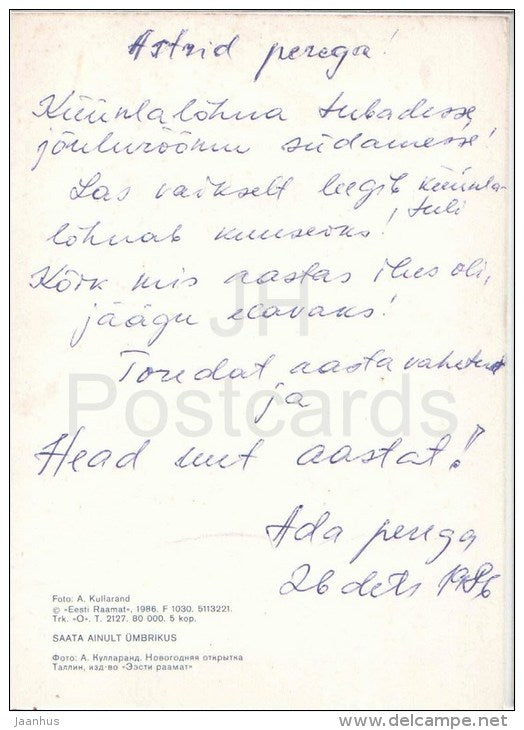 Astrid perega!
Küünlalõhna tubadesse,
jõulurõõmu südamesse!
Las vaikselt leegib küünla-
tuli
lõhnab kuuseoks!
Kõik mis aastas ilus oli,
jäägu elavaks!
Toredat aastavahetust
ja
Head uut aastat!
Ada perega
26 dets 1986
JH
Postcards
Foto: A. Kullarand
© «Eesti Raamat», 1986. F 1030. 5113221.
Trk. «O». T. 2127. 80 000. 5 kop.
SAATA AINULT ÜMBRIKUS
Фото: А. Кулларанд. Новогодняя открытка
Таллин, изд-во «Ээсти раамат»
jaanhus
www.delcampe.net